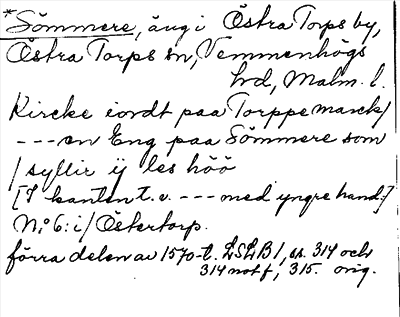 *Sömmere, äng i Östra Torps by,
Östra Torps sn, Vemmenhögs
hd, Malm. l.
Kircke iordt paa Torppe marck/
--- en Eng paa Sömmere som
/ syllir ij les höö
[I kanten t.v. --- med yngre hand:]
N:o 6: i / Östertorp.
förra delen av 1570-t. LSLB 1, s. 314 och
314 not f, 315. orig.